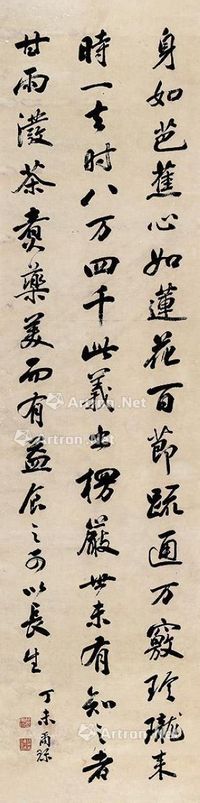 身如芭蕉心如蓮花百節踈通万竅玲瓏来
時一去时八万四千此義出楞嚴世未有知之者
甘雨潑茶煑藥美而有益食之可以長生
丁未
Artron.Net
Artron.Net
Artron.Net